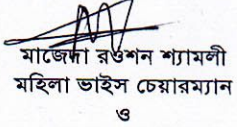 মাজেদা রওশন শ্যামলী
মহিলা ভাইস চেয়ারম্যান
ও